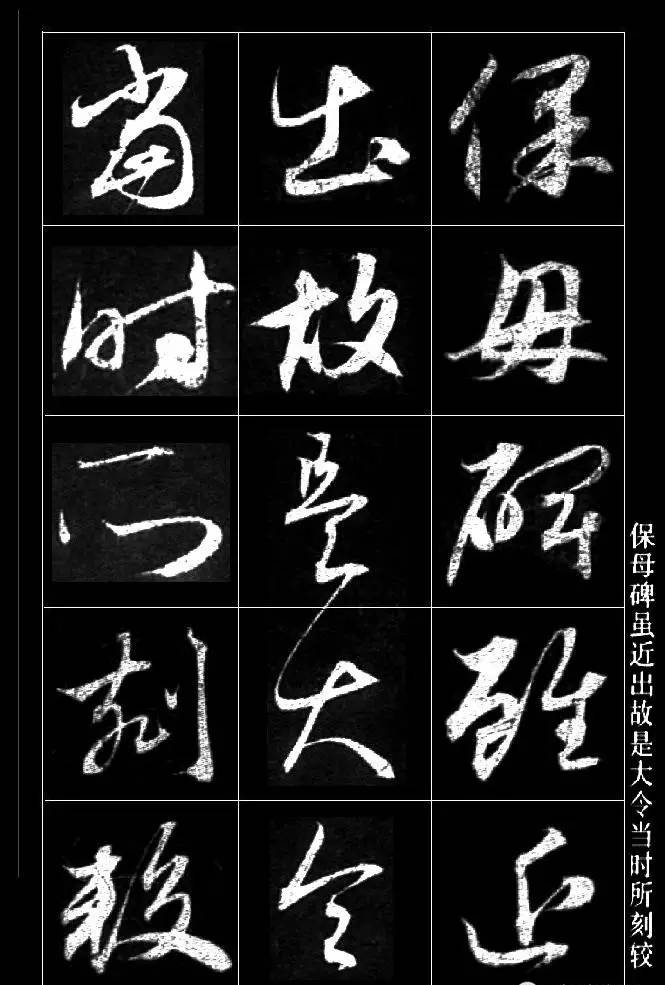 保母碑雖近
出故是大令
當時所刻較
保母碑虽近出故是大令当时所刻较